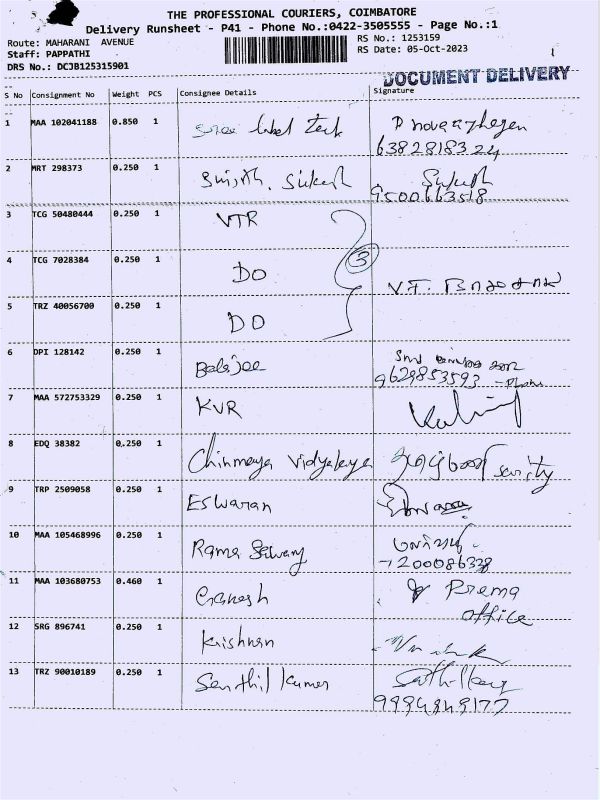 THE PROFESSIONAL COURIERS, COIMBATORE
Delivery Runsheet - P41 - Phone No.:0422-3505555 - Page No.:1
Route: MAHARANI AVENUE RS No.: 1253159
Staff: PAPPATHI RS Date: 05-Oct-2023
DRS No.: DCJB125315901
DOCUMENT DELIVERY
S No Consignment No Weight PCS Consignee Details Signature
1 MAA 102041188 0.850 1 label Tech
6382818324
2 MRT 298373 0.250 1 Sukesh Sukesh
9500663518
3 TCG 50480444 0.250 1 VTR
4 TCG 7028384 0.250 1 DO 3 V.T.
5 TRZ 40056700 0.250 1 DO
6 DPI 128142 0.250 1 Balajee
9629853593
7 MAA 572753329 0.250 1 KVR
8 EDQ 38382 0.250 1 Chinmaya Vidyalaya
9 TRP 2509058 0.250 1 Eswaran
10 MAA 105468996 0.250 1 Rama
11 MAA 103680753 0.460 1 Ganesh Prema
office
12 SRG 896741 0.250 1 Krishnan
13 TRZ 90010189 0.250 1 Senthil kumar